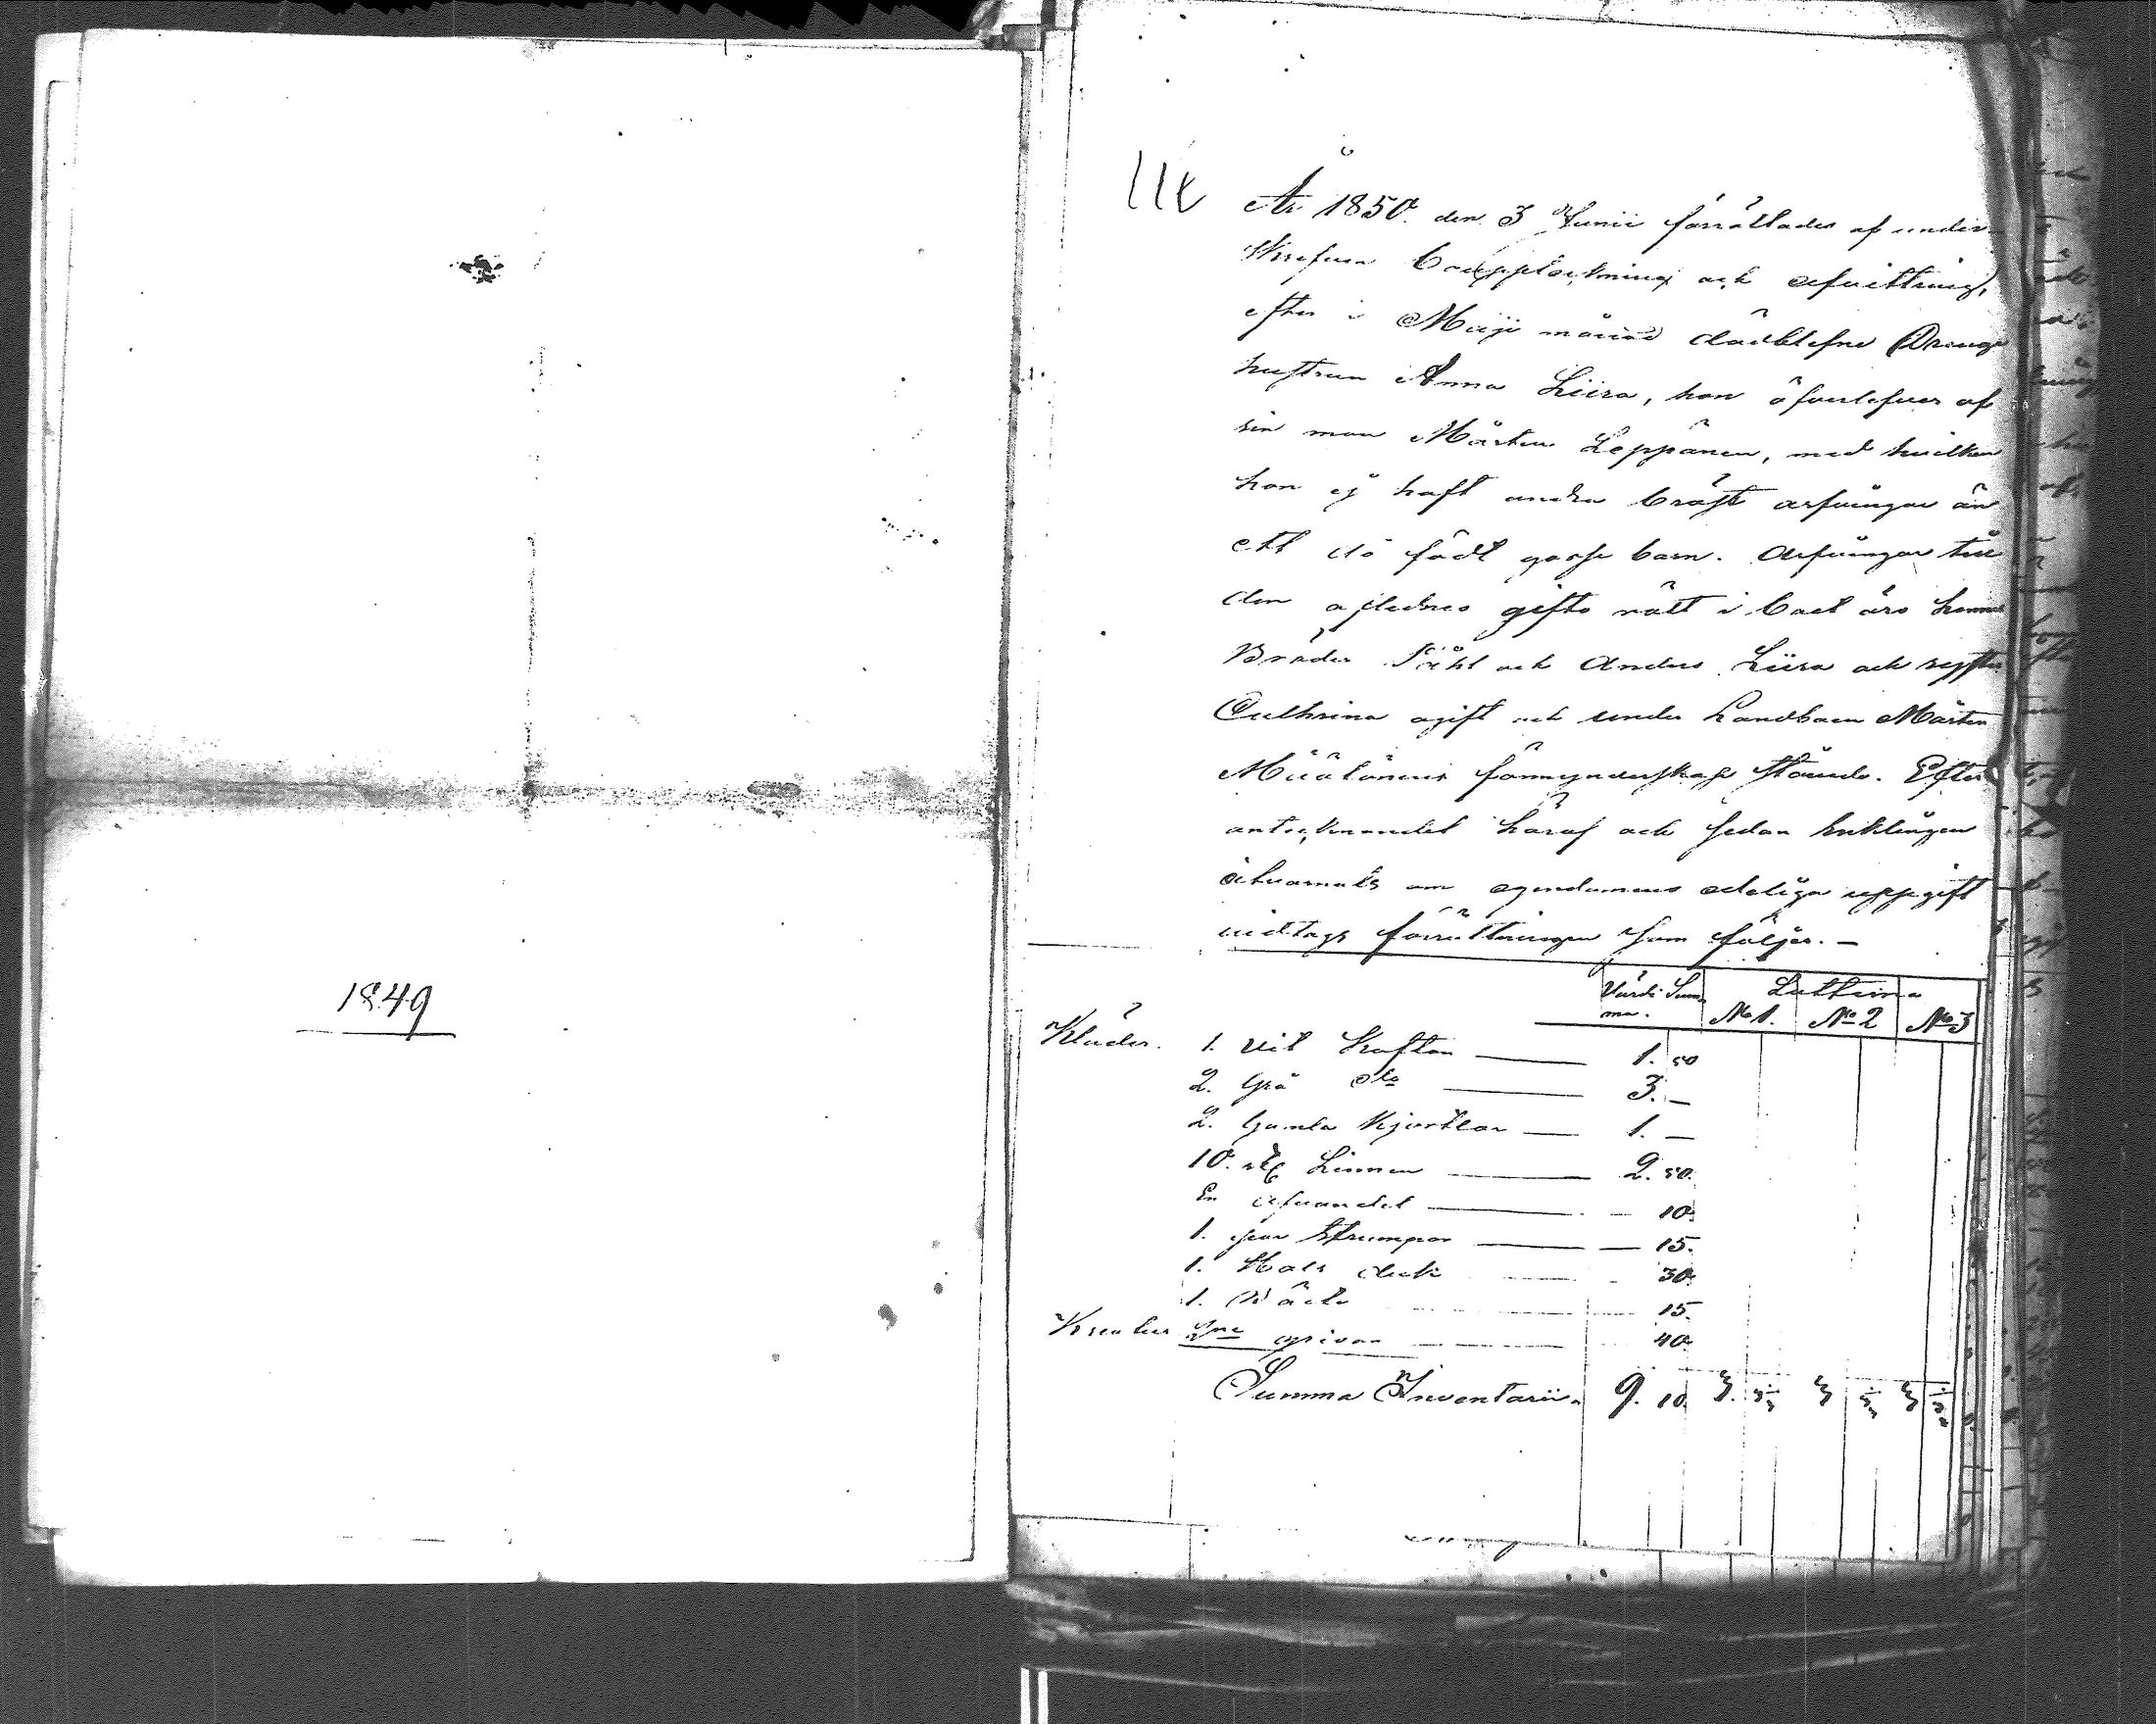 1849
År 1850 den 3 Junii förrättades af under
skrefven bouppteckning och afvittring,
efter i Maji månad dödblefne Dreng
hustrun Anna Liira, hon öfverlefves af
sin man Mårten Leppänen, med hvilken
hon ej haft andra bröst arfvingar än
ett dö född gosse barn. Arfvingar till
den aflednes gifto rätt i boet äro hennes
Bröder Påhl och Anders Liira och syster
Cathrina ogift och under Landboen Mårten
Määtänens förmynderskap stående. Efter
antecknandet häraf och sedan enklingen
åtvarnats om egendomens edeliga uppgift
vidtogs förrättningen som följer. —
Värdi Sum
ma. Lotterna
No 1. No 2 No 3
Kläder. 1. vit Kaftan 1. 50
2. Grå Dto 3. —
2. Gamla Kjortlar 1. —
10. st Linnen 2. 50.
En 10.
1. par Strumpor 15.
1. Hals duk 30.
1. 15.
Kreatur 40.
Summa Inventarii 9. 10. 3. 3 3